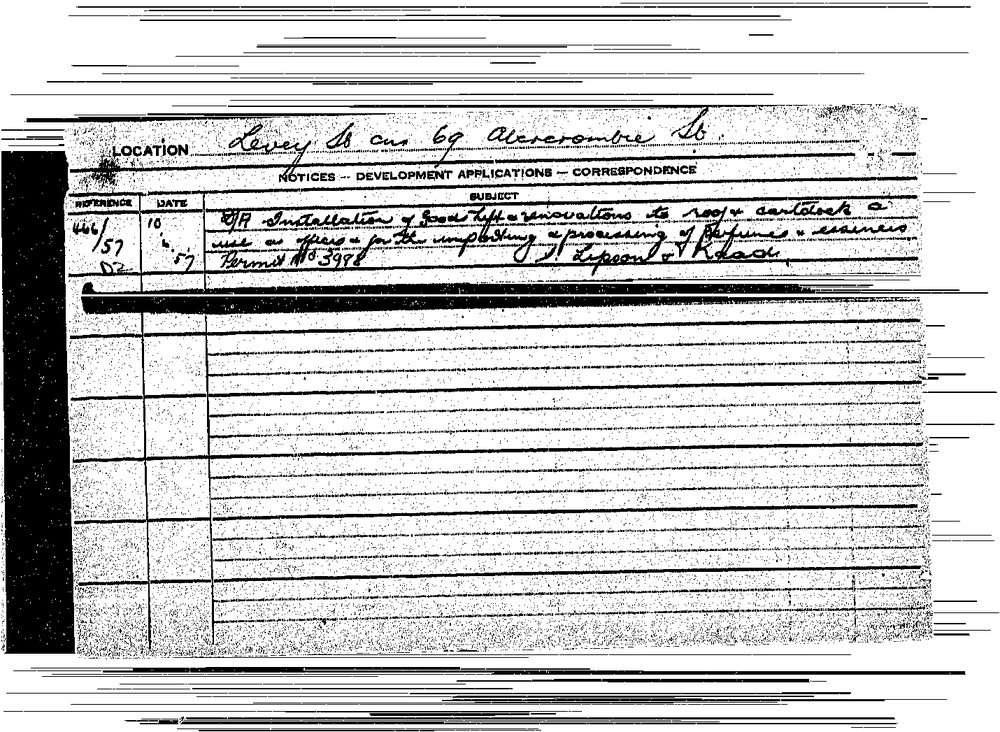 LOCATION Levey St cnr 69 Abercrombie St.
NOTICES — DEVELOPMENT APPLICATIONS — CORRESPONDENCE
REFERENCE DATE SUBJECT
466/57 10.6.57 D/A Installation of Goods Lift & renovations to roof & cartdock &
use as offices & for the importing & processing of Perfumes & essences
D2 Permit No 3998 Lipson & Kaad.